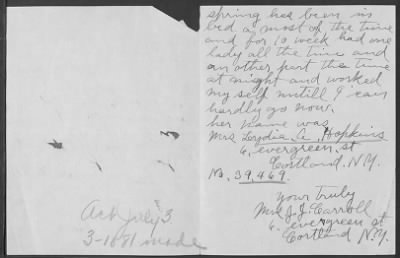 spring has been in
bed a most of the time
and for 10 week had one
lady all the time and
an other part the time
at night and worked
my self untill I can
hardly go now.
her name was
Mrs Lezdia. A. Hopkins
6. evergreen. st
Cortland. N.Y.
No. 39,469.
Your truly
Mrs. J. J. Carroll
6. evergreen st
Cortland N.Y.
Ack July 3
3-1081 made